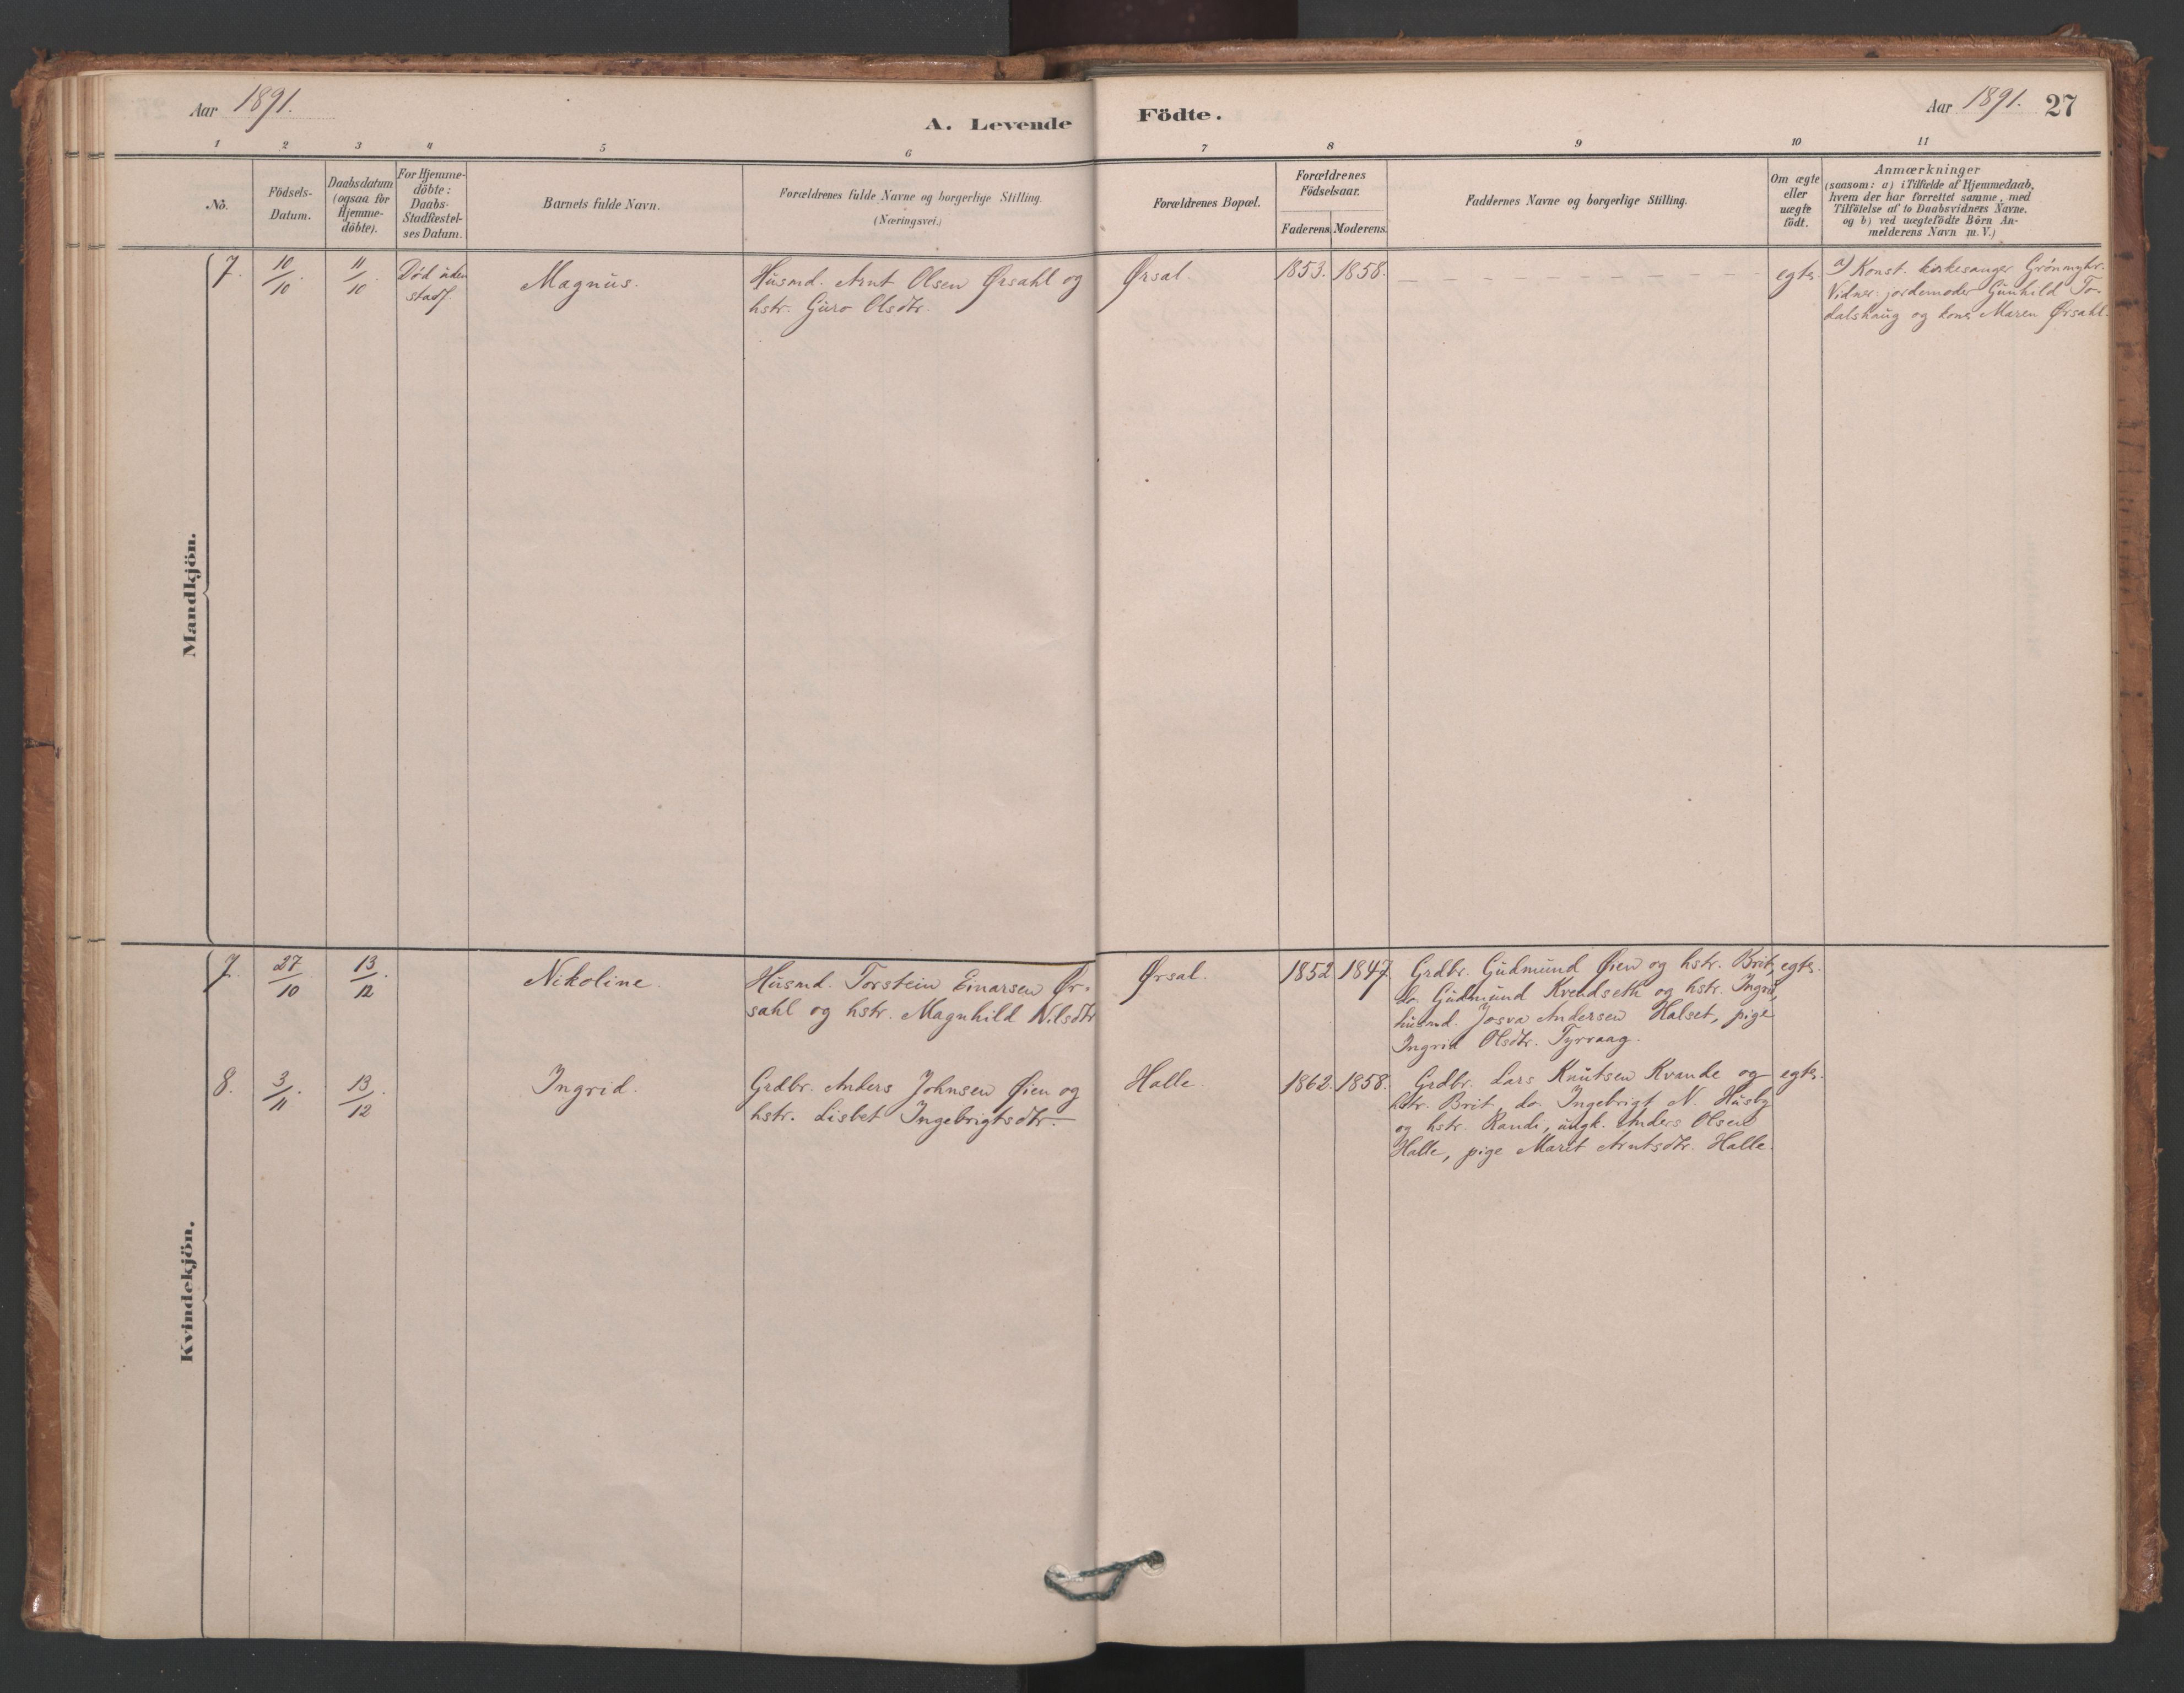 Aar 1891.
A. Levende Födte.
Aar 1891. 27
1 2 3 4 5 6 7 8 9 10 11
No.
Födsels-
Datum.
Daabsdatum
(ogsaa for
Hjemme-
döbte).
For Hjemme-
döbte:
Daabs-
Stadfæstel-
ses Datum.
Barnets fulde Navn.
Forældrenes fulde Navne og borgerlige Stilling.
(Næringsvei.)
Forældrenes Bopæl.
Forældrenes
Födselsaar.
Faderens. Moderens.
Faddernes Navne og borgerlige Stilling.
Om ægte
eller
uægte
födt.
Anmærkninger
(saasom: a) i Tilfælde af Hjemmedaab,
hvem der har forrettet samme, med
Tilföielse af to Daabsvidners Navne,
og b) ved uægtefödte Börn An-
melderens Navn m. V.)
Mandkjön.
7.
10/10.
11/10.
Död uden
stadf.
Magnus.
Husmd. Arnt Olsen Ørsahl og
hstr. Guro Olsdtr.
Ørsal.
1853. 1858.
egte.
a) Konst. kirkesanger Grönmyhr.
Vidner: jordemoder Gunhild To-
dalshaug og kone Maren Ørsahl.
Kvindekjön.
7.
27/10.
13/12
Nikoline.
Husmd. Torstein Einarsen Ør-
sahl og hstr. Magnhild Nilsdtr.
Ørsal.
1852 1847.
Grdbr. Gudmund Øien og hstr. Brit,
do. Gudmund Kvendseth og hstr. Ingrid,
husmd. Josva Andersen Halset, pige
Ingrid Olsdtr. Tyrraag.
egte.
8.
3/11.
13/12.
Ingrid.
Grdbr. Anders Johnsen Øien og
hstr. Lisbet Ingebrigtsdtr.
Halle.
1862. 1858.
Grdbr. Lars Knutsen Kvande og
hstr. Brit, do. Ingebrigt N. Husby
og hstr. Randi, ungk. Anders Olsen
Halle, pige Marit Arntsdtr. Halle.
egte.